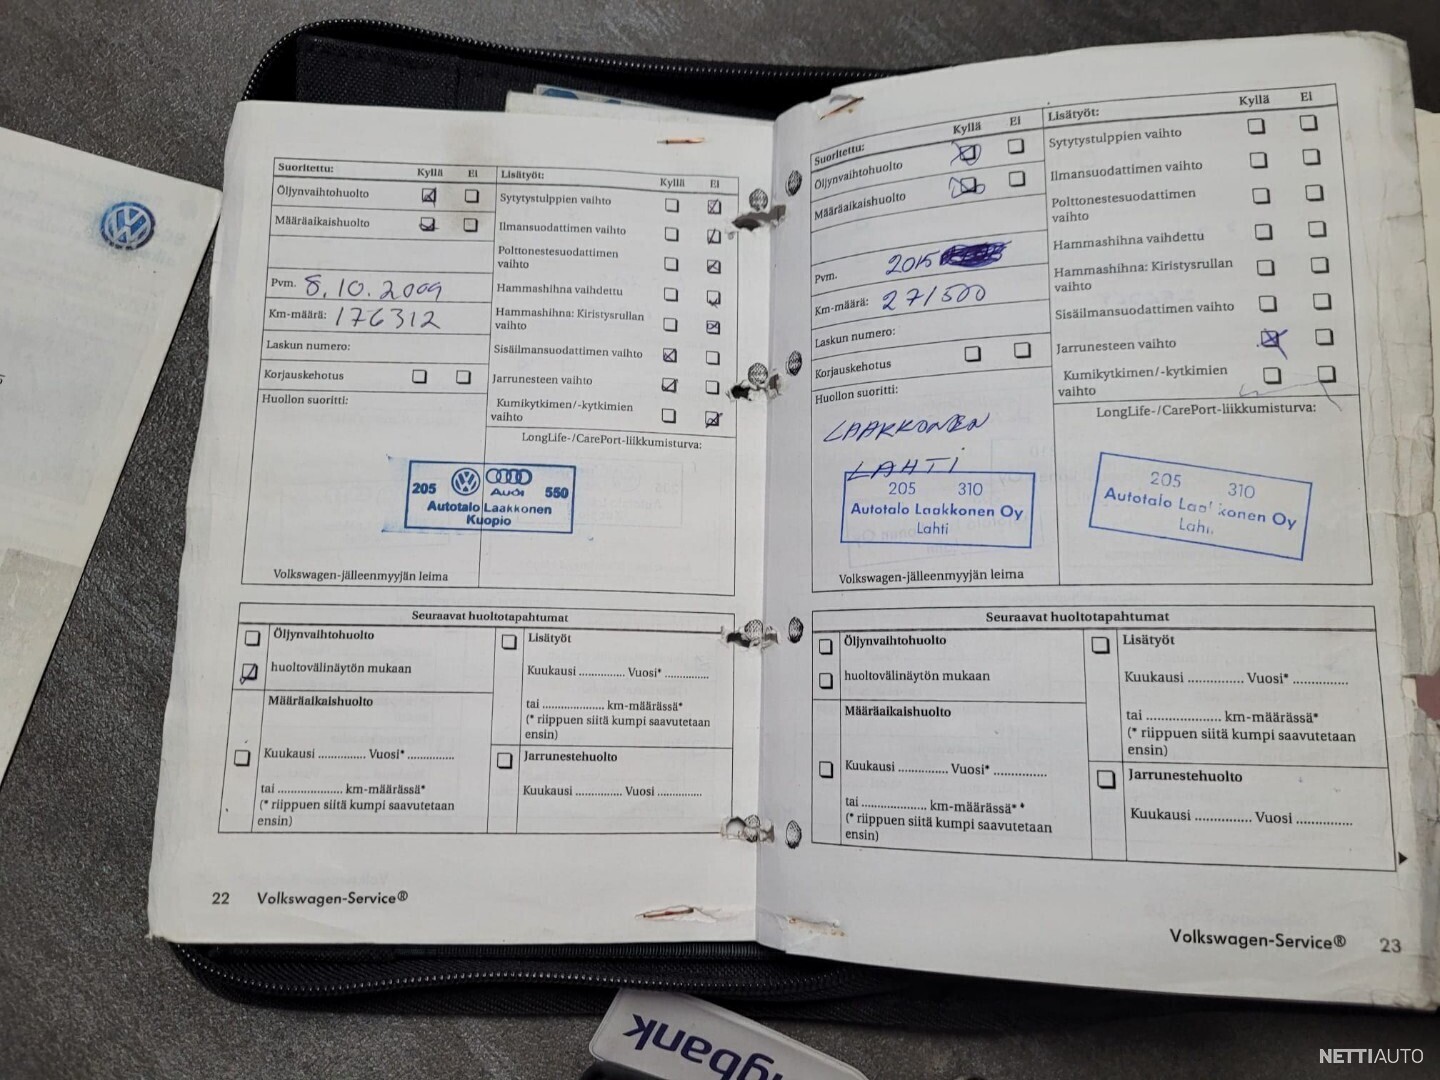 Suoritettu: Kyllä Ei
Öljynvaihtohuolto
Määräaikaishuolto
Pvm. 8.10.2009
Km-määrä: 176312
Laskun numero:
Korjauskehotus
Huollon suoritti:
205 AUDI 550
Autotalo Laakkonen
Kuopio
Volkswagen-jälleenmyyjän leima
Lisätyöt: Kyllä Ei
Sytytystulppien vaihto
Ilmansuodattimen vaihto
Polttonestesuodattimen
vaihto
Hammashihna vaihdettu
Hammashihna: Kiristysrullan
vaihto
Sisäilmansuodattimen vaihto
Jarrunesteen vaihto
Kumikytkimen/-kytkimien
vaihto
LongLife-/CarePort-liikkumisturva:
Seuraavat huoltotapahtumat
Öljynvaihtohuolto
huoltovälinäytön mukaan
Määräaikaishuolto
Kuukausi .............. Vuosi* ..............
tai .................... km-määrässä*
(* riippuen siitä kumpi saavutetaan
ensin)
Lisätyöt
Kuukausi .............. Vuosi* ..............
tai .................... km-määrässä*
(* riippuen siitä kumpi saavutetaan
ensin)
Jarrunestehuolto
Kuukausi .............. Vuosi ..............
22 Volkswagen-Service®
Suoritettu: Kyllä Ei
Öljynvaihtohuolto
Määräaikaishuolto
Pvm. 2015
Km-määrä: 271500
Laskun numero:
Korjauskehotus
Huollon suoritti:
LAAKKONEN
LAHTI
205 310
Autotalo Laakkonen Oy
Lahti
Volkswagen-jälleenmyyjän leima
Lisätyöt: Kyllä Ei
Sytytystulppien vaihto
Ilmansuodattimen vaihto
Polttonestesuodattimen
vaihto
Hammashihna vaihdettu
Hammashihna: Kiristysrullan
vaihto
Sisäilmansuodattimen vaihto
Jarrunesteen vaihto
Kumikytkimen/-kytkimien
vaihto
LongLife-/CarePort-liikkumisturva:
205 310
Autotalo Laakkonen Oy
Lahti
Seuraavat huoltotapahtumat
Öljynvaihtohuolto
huoltovälinäytön mukaan
Määräaikaishuolto
Kuukausi .............. Vuosi* ..............
tai .................... km-määrässä* *
(* riippuen siitä kumpi saavutetaan
ensin)
Lisätyöt
Kuukausi .............. Vuosi* ..............
tai .................... km-määrässä*
(* riippuen siitä kumpi saavutetaan
ensin)
Jarrunestehuolto
Kuukausi .............. Vuosi ..............
Volkswagen-Service® 23
NETTIAUTO